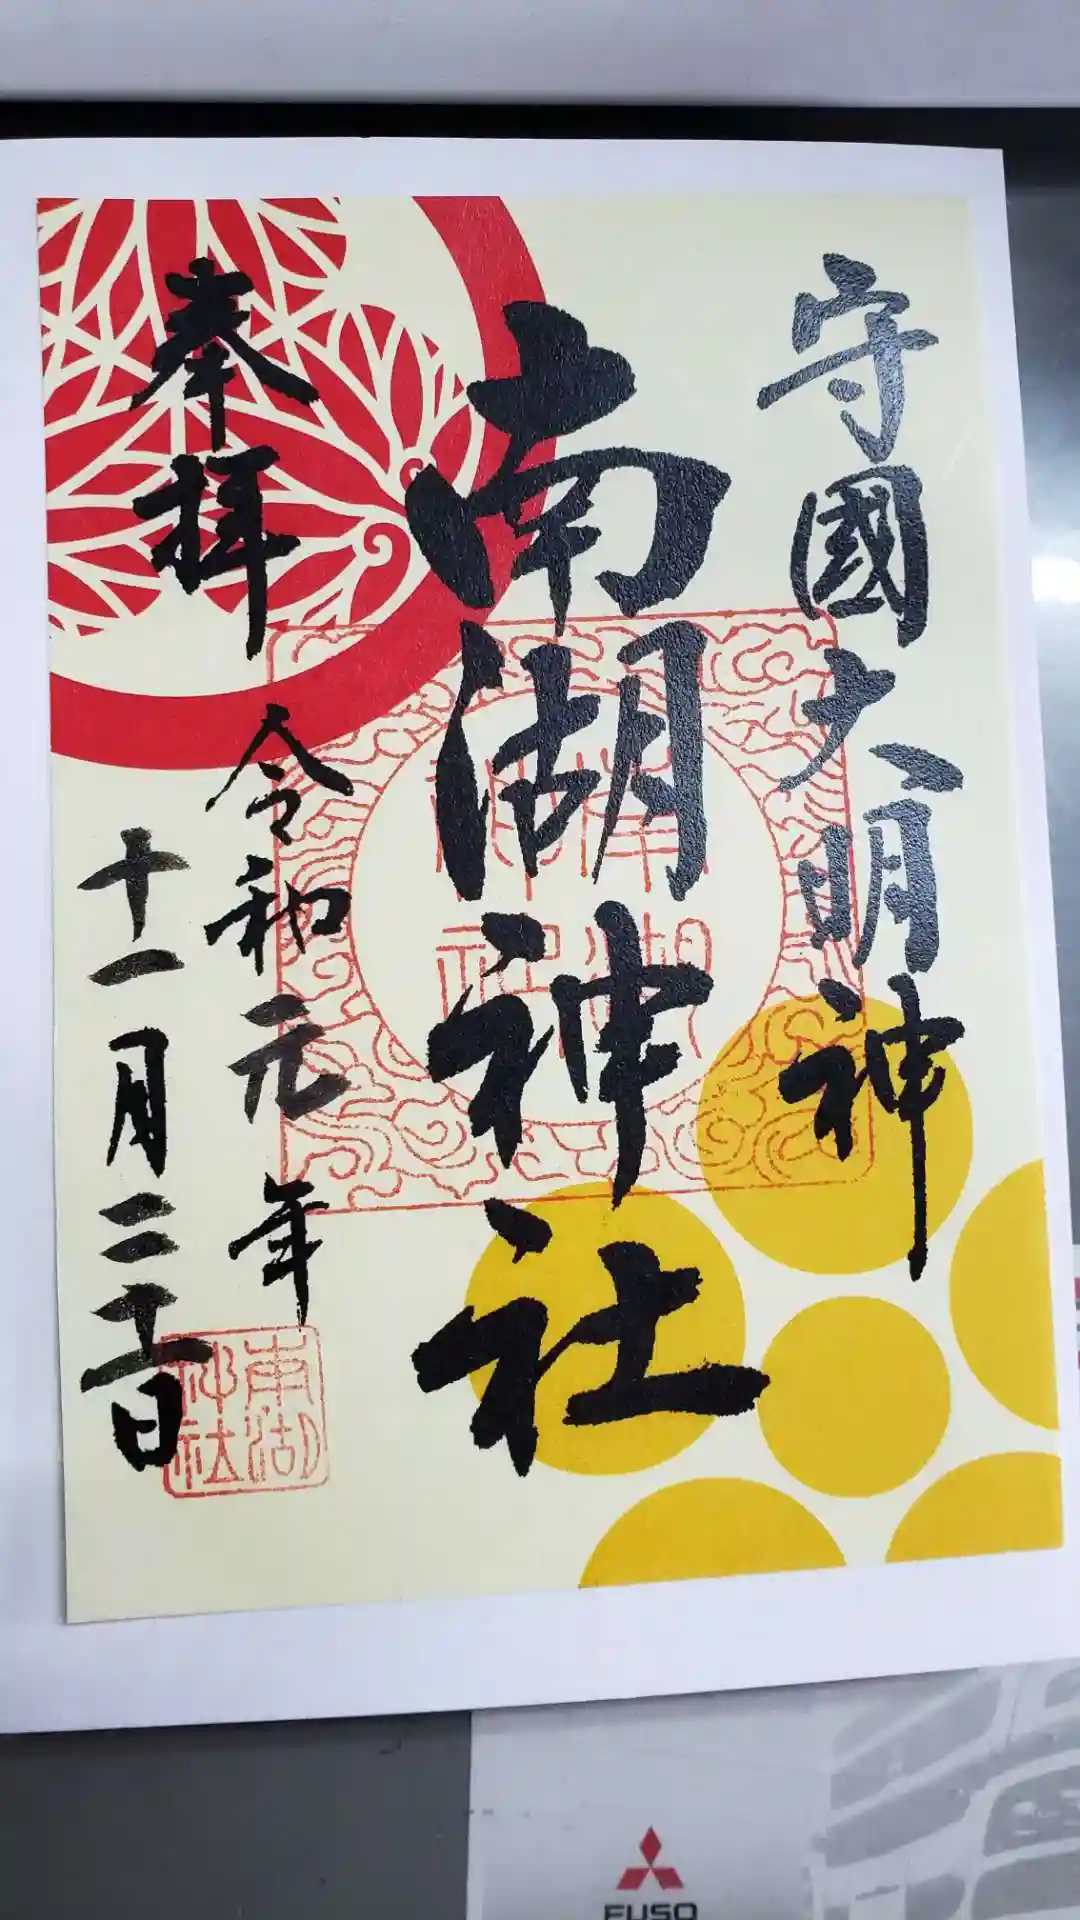 守國大明神
南湖神社
奉拝
令和元年
十一月三十日
南湖
神社
南湖
神社
FUSO